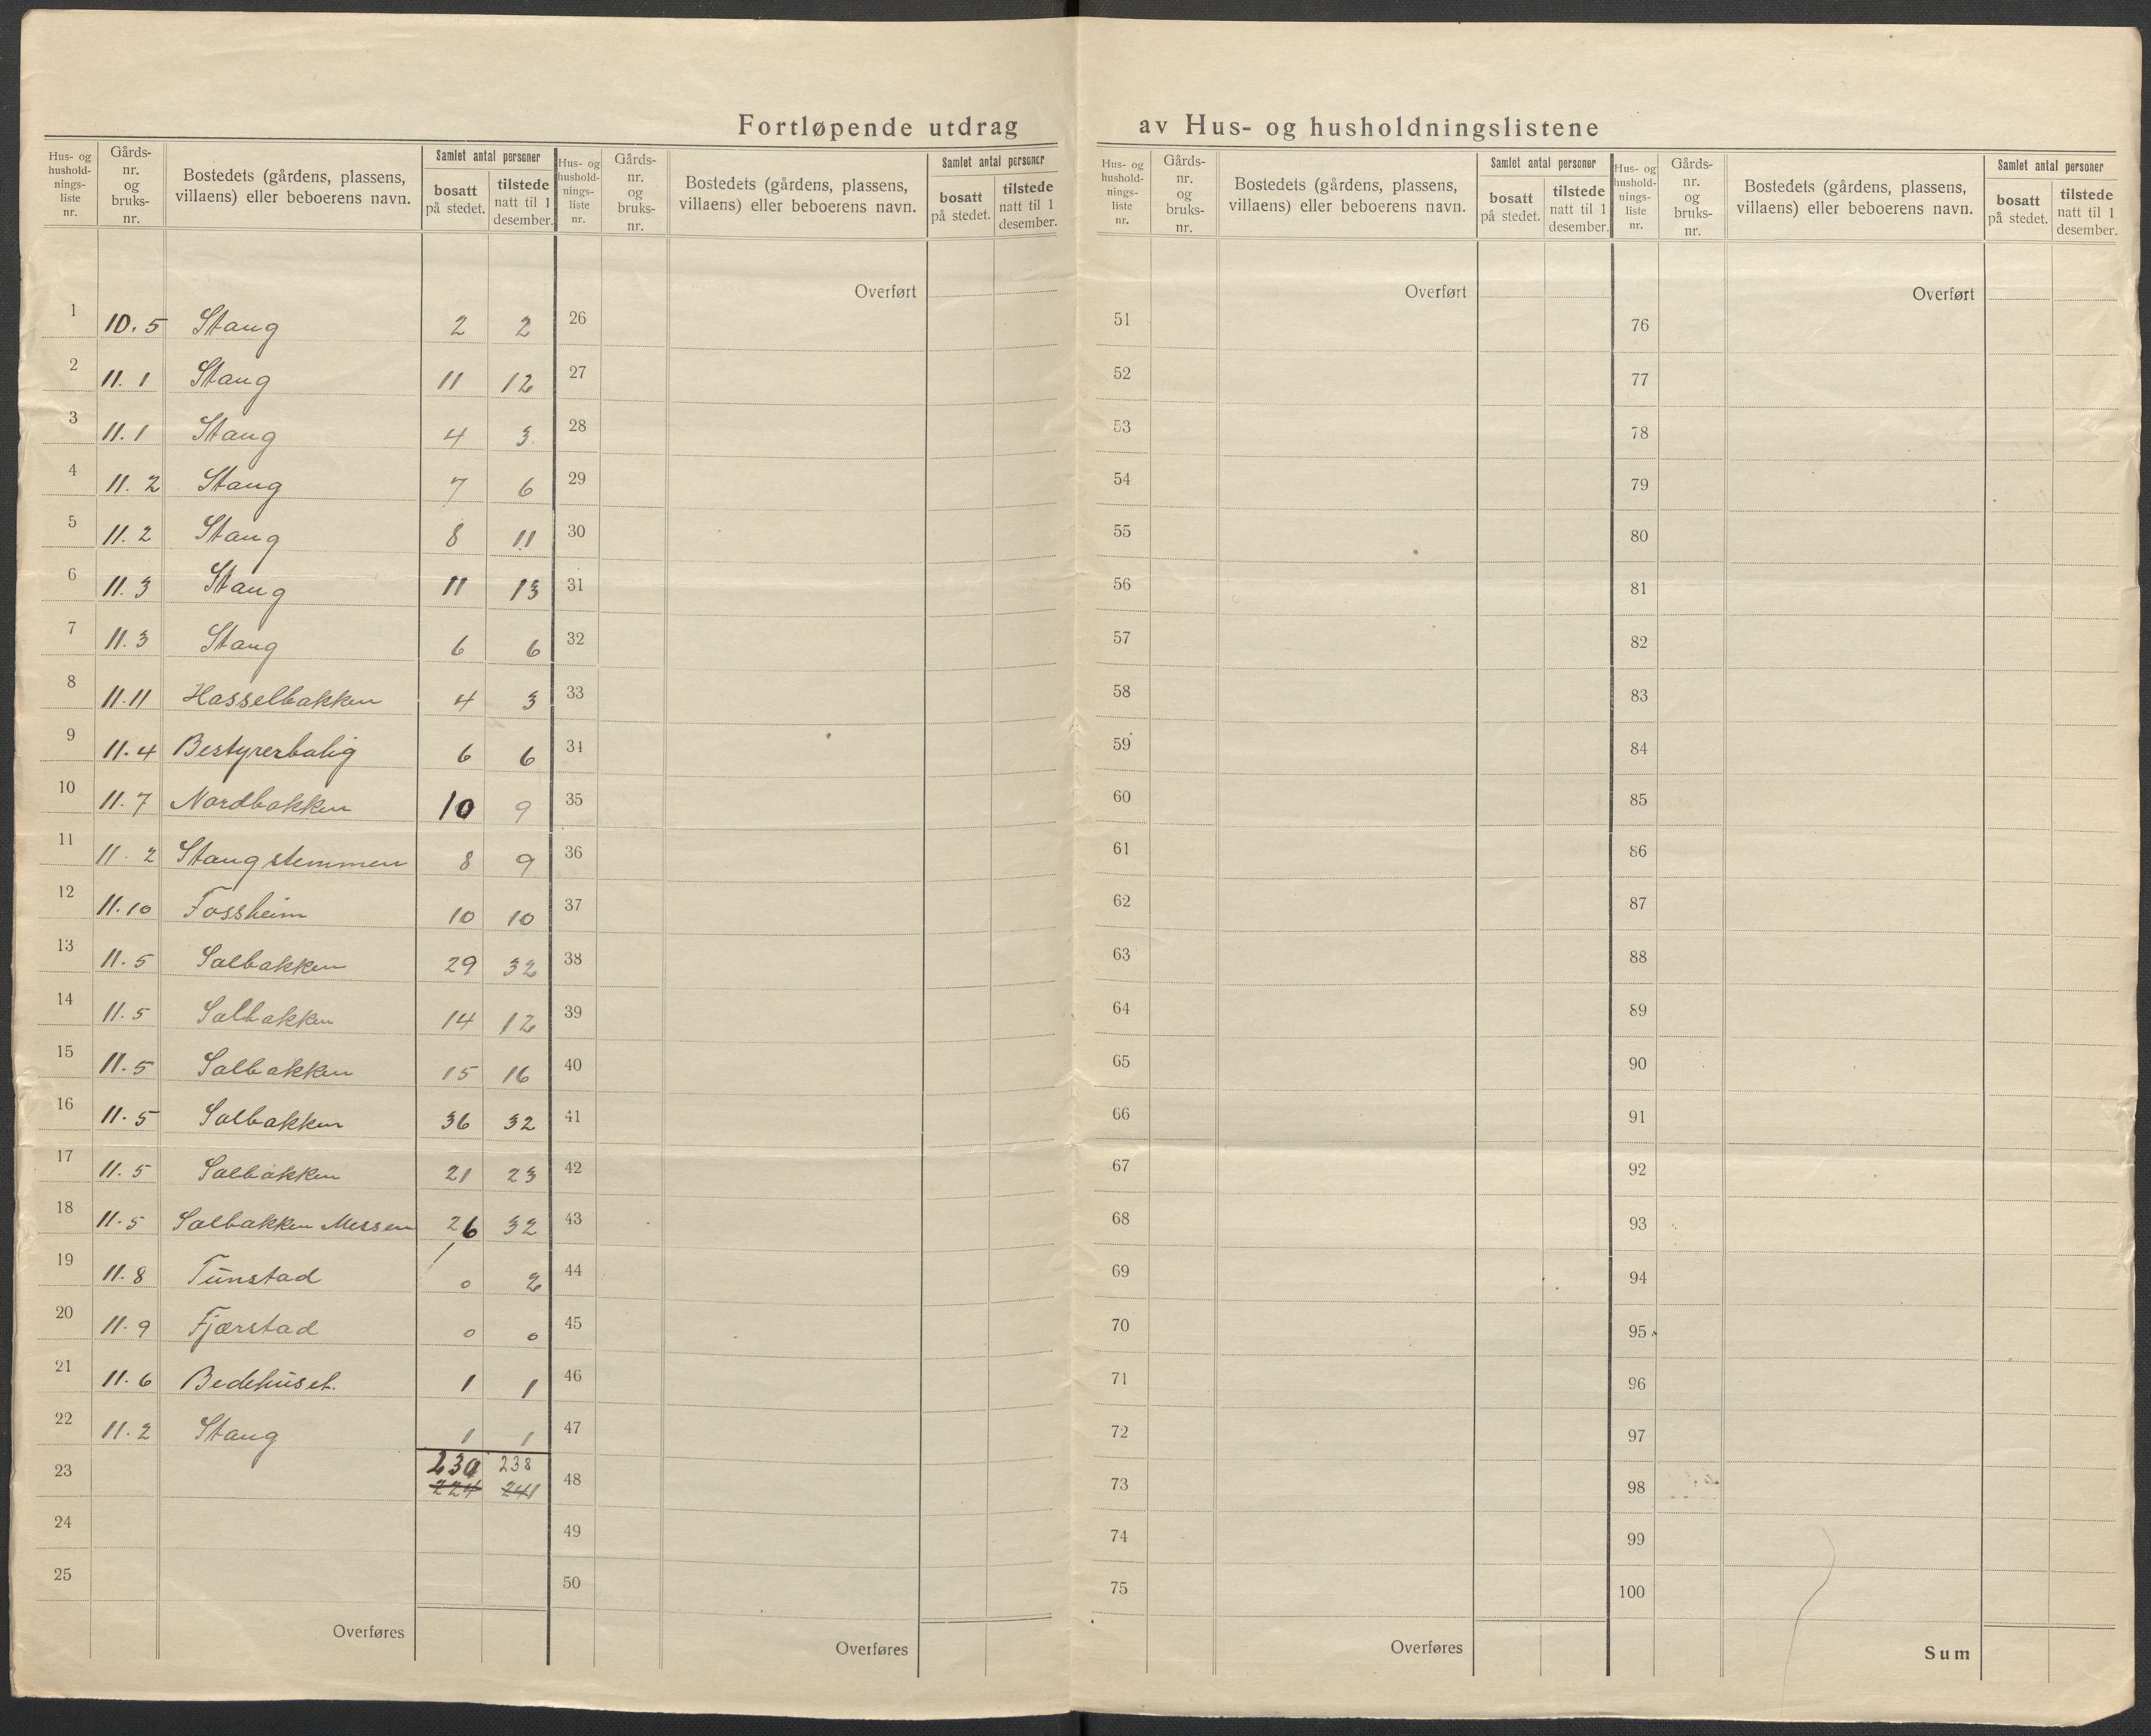 Fortløpende utdrag av Hus- og husholdningslistene
Hus- og hushold-nings-liste nr. Gårds-nr. og bruks-nr. Bostedets (gårdens, plassens, villaens) eller beboerens navn. Samlet antal personer bosatt på stedet. tilstede natt til 1 desember.
1 10.5 Stang 2 2
2 11.1 Stang 11 12
3 11.1 Stang 4 3
4 11.2 Stang 7 6
5 11.2 Stang 8 11
6 11.3 Stang 11 13
7 11.3 Stang 6 6
8 11.11 Hasselbakken 4 3
9 11.4 Bestyrerbolig 6 6
10 11.7 Nordbakken 10 9
11 11.2 Stangstemmen 8 9
12 11.10 Fossheim 10 10
13 11.5 Solbakken 29 32
14 11.5 Solbakken 14 12
15 11.5 Solbakken 15 16
16 11.5 Solbakken 36 32
17 11.5 Solbakken 21 23
18 11.5 Solbakken Messen 26 32
19 11.8 Tunstad 0 2
20 11.9 Fjærstad 0 0
21 11.6 Bedehuset. 1 1
22 11.2 Stang 1 1
23 238
224 241
24
25
Overføres
Hus- og hushold-nings-liste nr. Gårds-nr. og bruks-nr. Bostedets (gårdens, plassens, villaens) eller beboerens navn. Samlet antal personer bosatt på stedet. tilstede natt til 1 desember.
Overført
26
27
28
29
30
31
32
33
34
35
36
37
38
39
40
41
42
43
44
45
46
47
48
49
50
Overføres
Hus- og hushold-nings-liste nr. Gårds-nr. og bruks-nr. Bostedets (gårdens, plassens, villaens) eller beboerens navn. Samlet antal personer bosatt på stedet. tilstede natt til 1 desember.
Overført
51
52
53
54
55
56
57
58
59
60
61
62
63
64
65
66
67
68
69
70
71
72
73
74
75
Overføres
Hus- og hushold-nings-liste nr. Gårds-nr. og bruks-nr. Bostedets (gårdens, plassens, villaens) eller beboerens navn. Samlet antal personer bosatt på stedet. tilstede natt til 1 desember.
Overført
76
77
78
79
80
81
82
83
84
85
86
87
88
89
90
91
92
93
94
95
96
97
98
99
100
Sum